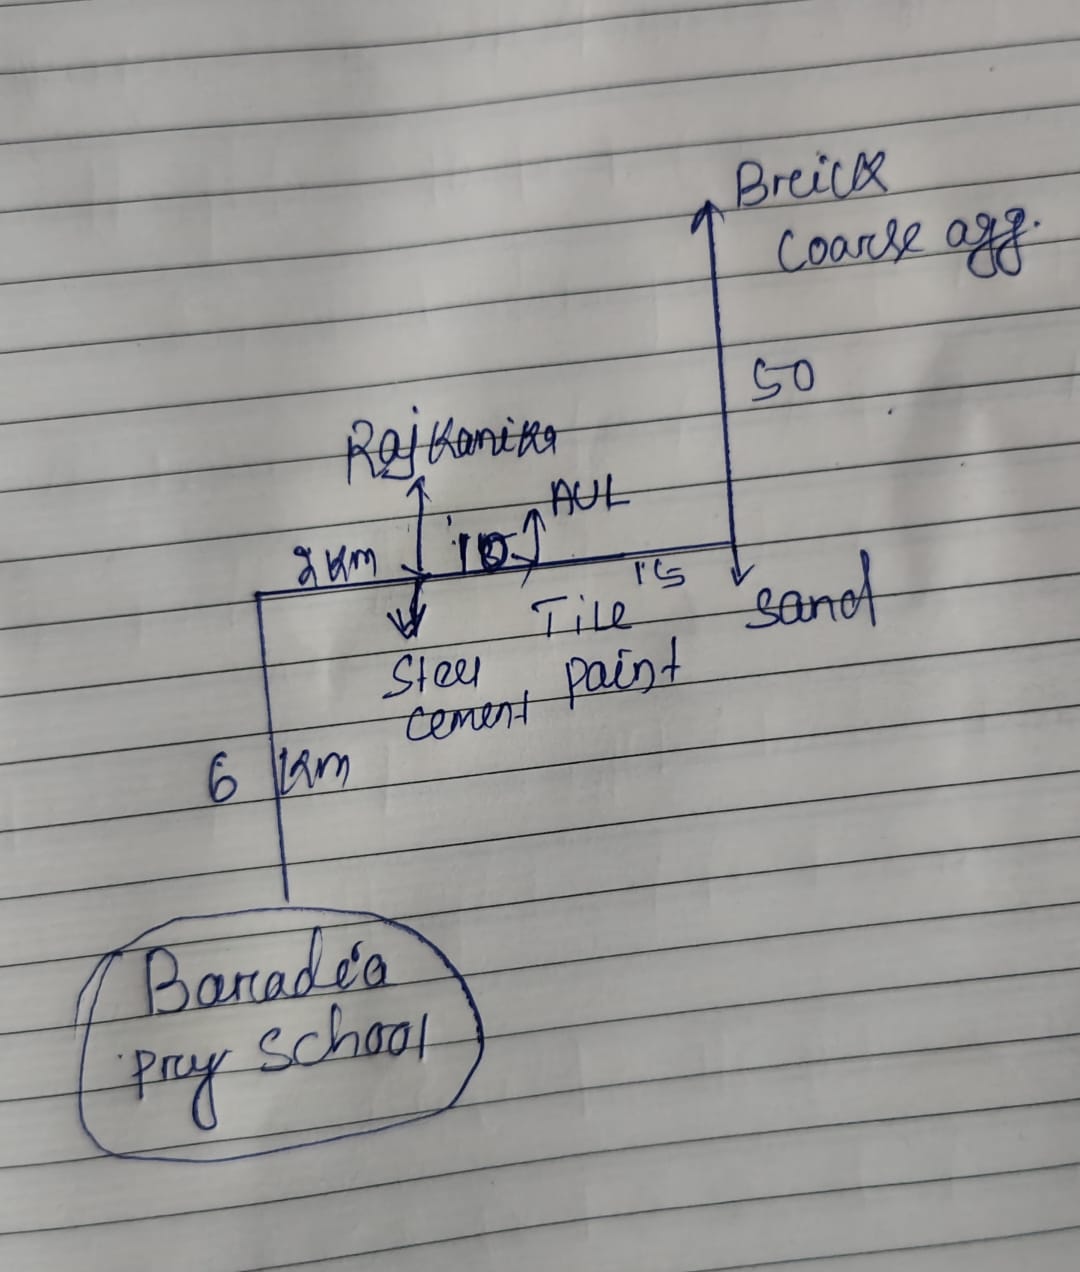 Breick
Coarse agg.
50
Rajkanika
AUL
2 Km
10
15
Sand
Tile
paint
Steel
cement
6 Km
Baradia
pry School